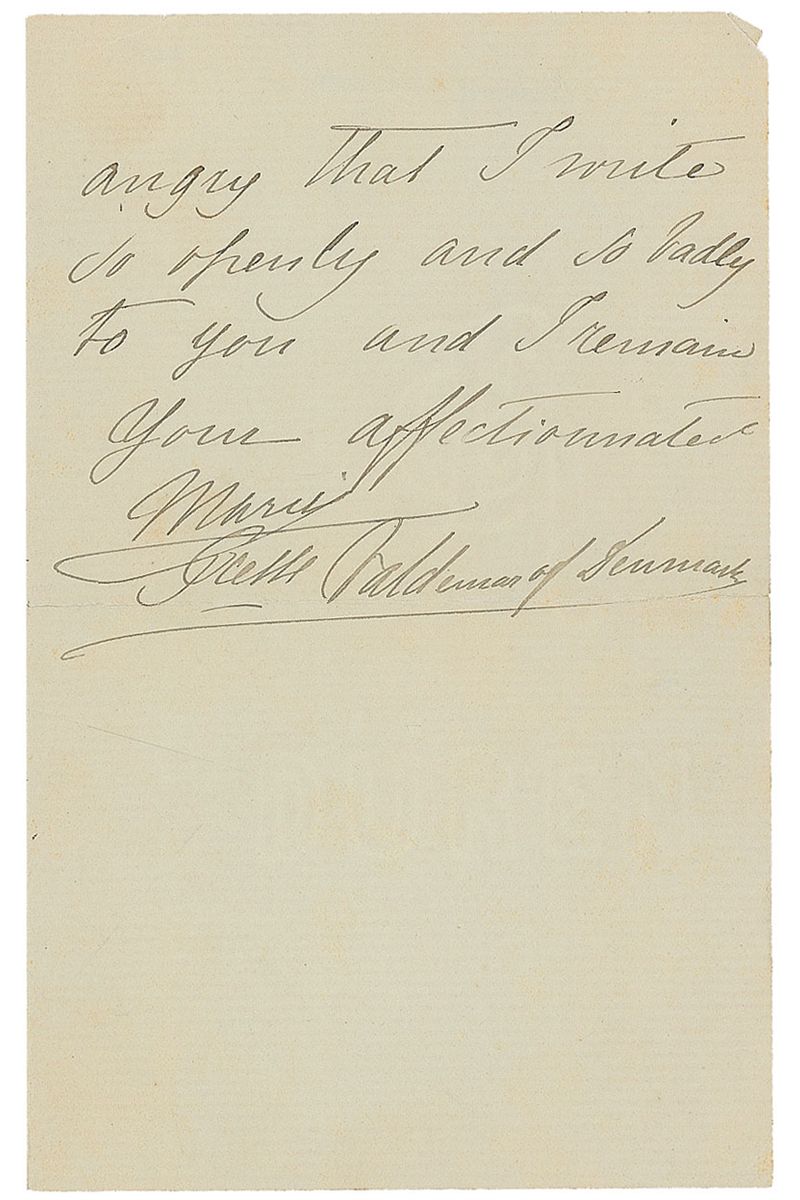 angry that I write
so openly and so badly
to you and I remain
Your affectionnated
Marie
Pcess Valdemar of Denmark